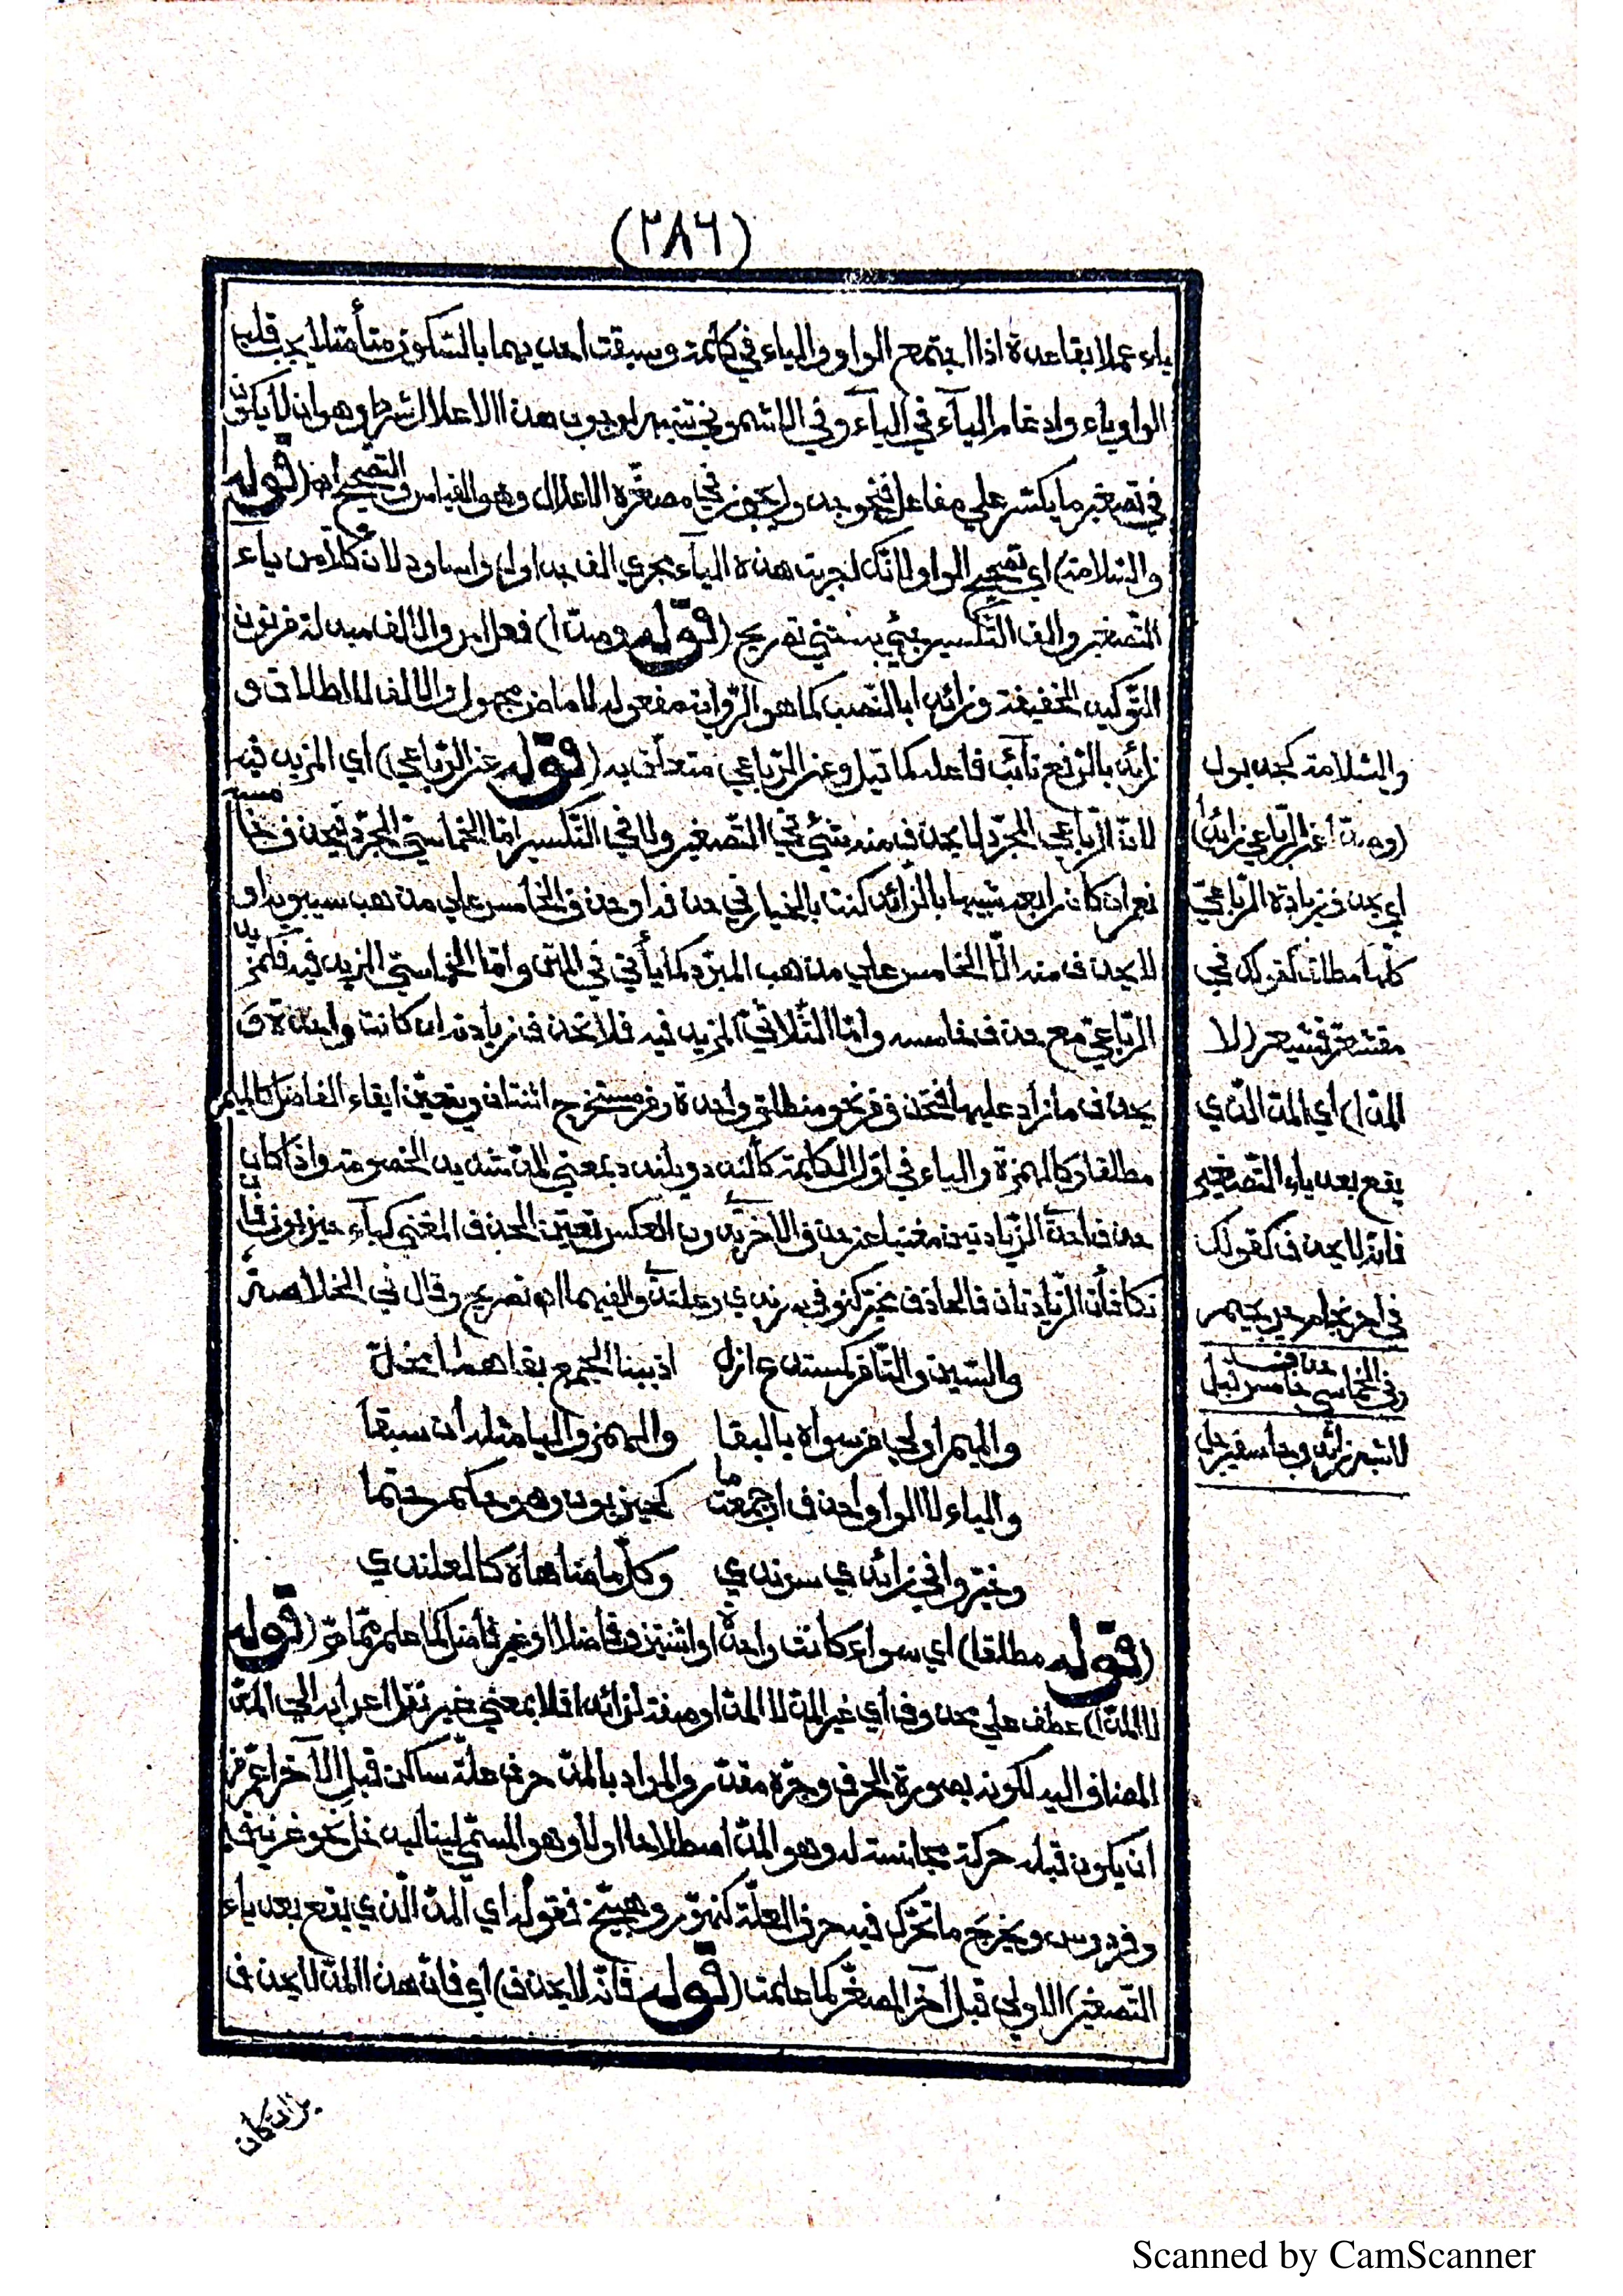 (٢٨٦)
ياء عملا بقاعدة اذا اجتمع الواو والياء في كلمة وسبقت احديهما بالسّكون متأصّلا يجب قلب
الواو ياء وادغام اليآء في اليآء وفي الاشموني تنبيه لوجوب هذا الاعلال شرط وهو ان لا يكون
في تصغير ما يكسّر على مفاعل فنحو جدول يجوز في مصغّره الاعلال وهو القياس والتصحيح اه (قوله
والسّلامة) اي تصحيح الواو لانّك اجريت هذه اليآء مجرى الف جداول واساود لانّ كلّا من ياء
التّصغير والف التّكسير يستنتي تصريح (قوله وصدّا) فعل امر والالف مبدلة من نون
التّوكيد الخفيفة وزائدا بالنّصب كما هو الرّواية مفعوله لا ماض مجهول والالف للاطلاق و
زائد بالرّفع نائب فاعله كما قيل وعن الرّباعي متعلّق به (قوله عن الرّباعي) اي المزيد فيه
لانّ الرّباعي المجرّد لا يحذف منه شئ في التّصغير ولا في التّكسير امّا الخماسيّ المجرّد فيحذف خامسه
نعم ان كان رابعه شبيها بالزّائد كنت بالخيار في حذفه او حذف الخامس على مذهب سيبويه او
لا يحذف منه الّا الخامس على مذهب المبرّد كما يأتي في المتن وامّا الخماسيّ المزيد فيه فكمزيد
الرّباعيّ مع حذف خامسه وامّا الثّلاثيّ المزيد فيه فلا تحذف زيادته ان كانت واحدة و
يحذف ما زاد عليها فتحذف من نحو منطلق واحدة ومن مستخرج اثنتان ويتعيّن ابقاء الفاضل كالميم
مطلقا وكالهمزة والياء في اوّل الكلمة كألندد ويلندد بمعنى الدّ شديد الخصومة واذا كان
حذف احدى الزّيادتين مغنيا عن حذف الاخرى بدون العكس تعيّن الحذف المغني كياء حيزبون فان
تكافأت الزّيادتان فالحاذف مخيّر كنوني سرندي وعلندى والفيهما اه تصريح وقال في الخلاصة
والسّين والتّا من كمستدع ازل اذ ببنا الجمع بقاهما مخلّ
والميم اولى من سواه بالبقا والهمز واليا مثله ان سبقا
والياء لا الواو احذف ان جمعت ما كحيزبون وهو حكم حتما
وخيّروا في زائدي سرندي وكلّ ما ضاهاه كالعلندي
(قوله مطلقا) اي سواء كانت واحدة او اثنتين وفاضلا او غير فاضل كما علم ممّا مرّ (قوله
لا المدّا) عطف على محذوف اي غير المدّ لا المدّ او صفة لزائدا فلا بمعنى غير نقل اعرابه الى المدّ
المضاف اليه لكونه بصورة الحرف وجرّه مقدّر والمراد بالمدّ حرف علّة ساكن قبل الآخر اعمّ من
ان يكون قبله حركة مجانسة له وهو المدّ اصطلاحا اولا وهو المسمّى لينا ليدخل نحو غرنيق
وفردوس ويخرج ما تحرّك فيه حرف العلّة كنهوّر وهبيّخ فقوله اي المدّ الّذي يقع بعد ياء
التّصغير) الاولى قبل آخر المصغّر كما علمت (قوله فانّه لا يحذف) اي فانّ هذا المدّ لا يحذف
والسّلامة كجديول
(وصدّا عن الرّباعي زائدا)
اي يحذف زيادة الرّباعيّ
كلّها مطلقا كقولك في
مقشعرّ قشيعر (لا
المدّا) اي المدّ الّذي
يقع بعد ياء التّصغير
فانّه لا يحذف كقولك
في احرنجام حريجيم
وفي الخماسي خامس قبل حذف قد
لا شبه زائد وجا سفيرجل
بل ان كان
Scanned by CamScanner